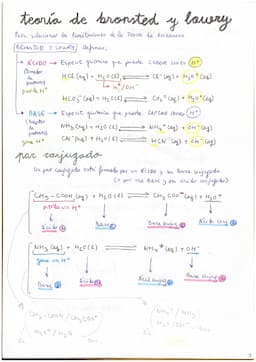 teoría de bronsted y lowry
Para solucionar las limitaciones de la Teoría de Arrhenius
BRONSTED Y LOWRY definen:
ÁCIDO → Especie química que puede ceder H⁺
(Donador de protones)
pierde H⁺
HCl (aq) + H₂O (l) ⇌ Cl⁻ (aq) + H₃O⁺ (aq)
H⁺/OH⁻
+ H₂O (l) ⇌ + H₃O⁺ (aq)
BASE → Especie química que puede captar H⁺
gana H⁺
NH₃ (aq) + H₂O (l) ⇌ NH₄⁺ (aq) + OH⁻ (aq)
CN⁻ (aq) + H₂O (l) ⇌ HCN (aq) + OH⁻ (aq)
par conjugado
Un par conjugado está formado por un ÁCIDO y su Base conjugada
(o por una base y su ácido conjugado)
CH₃-COOH (aq) + H₂O (l) ⇌ CH₃COO⁻ (aq) + H₃O⁺
pierde un H⁺
Ácido Base Base conj Ácido conj
NH₃ (aq) + H₂O (l) ⇌ NH₄⁺ (aq) + OH⁻
gana un H⁺
Base Ácido Ácido conj Base conj
CH₃-COOH / CH₃COO⁻
H₃O⁺ / H₂O
NH₄⁺ / NH₃
H₂O / OH⁻